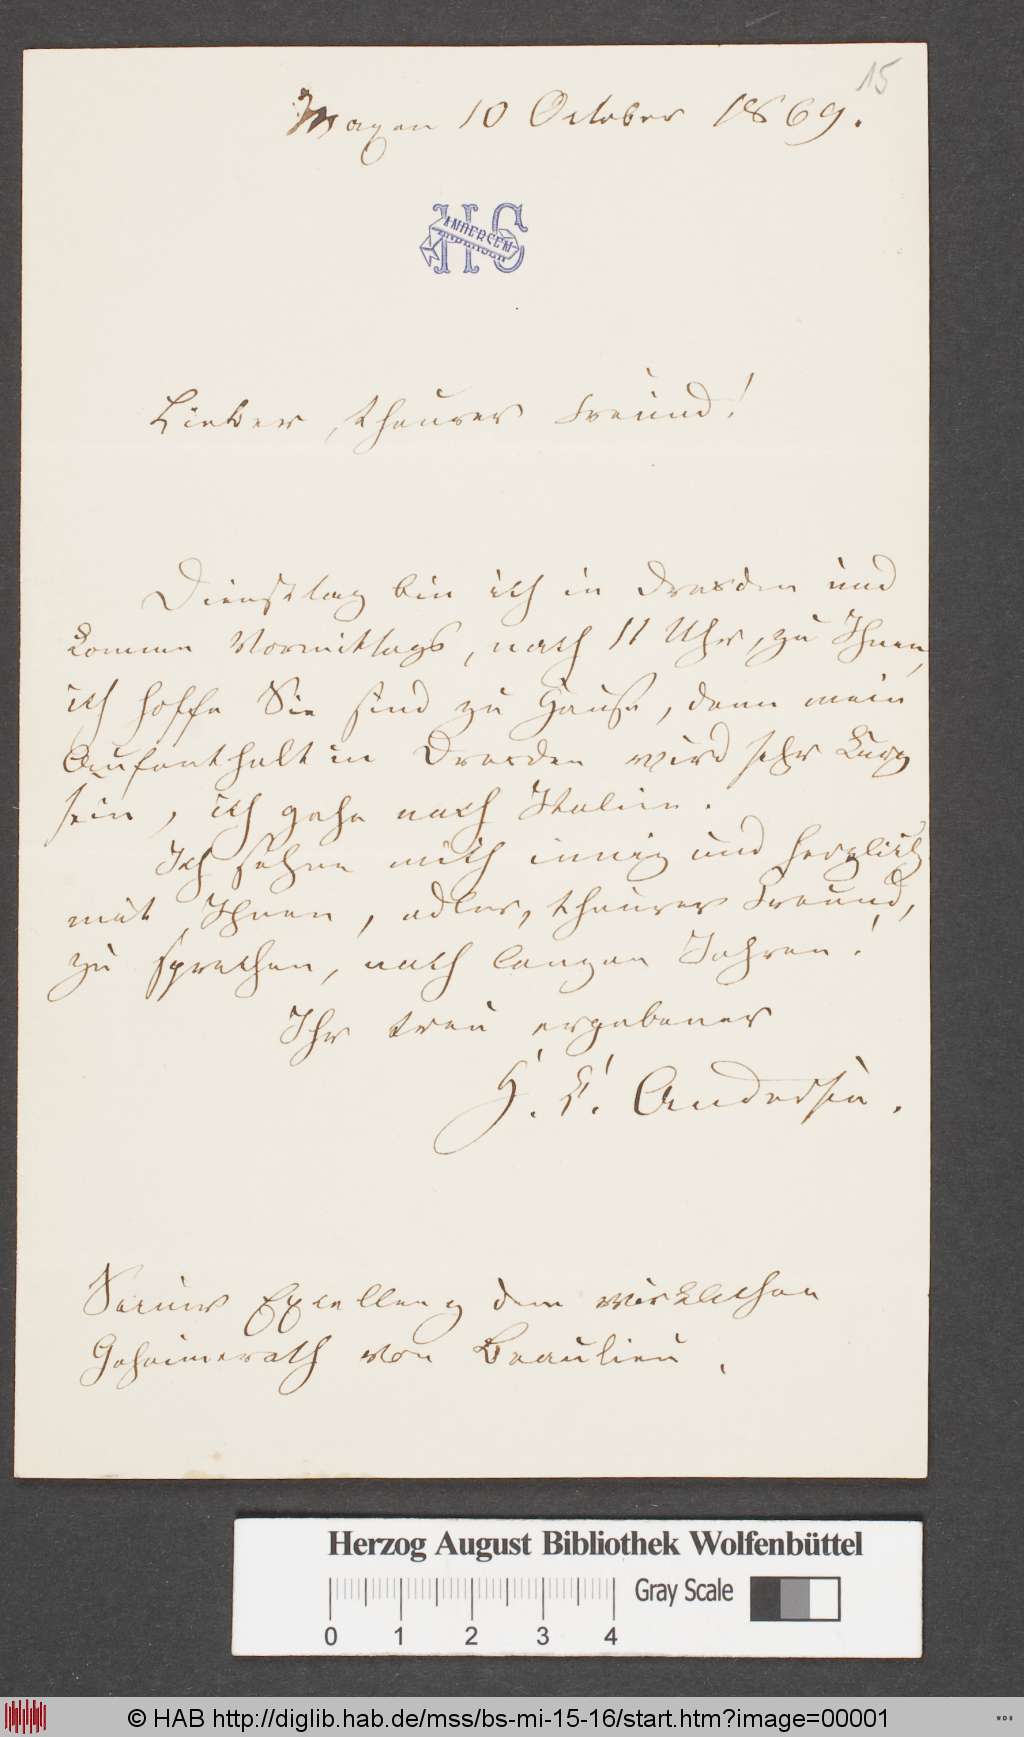 15
Maxen 10 October 1869.
HS
ANDERSEN
Lieber, theurer Freund!
Dienstag bin ich in Dresden und
komme Vormittags, nach 11 Uhr, zu Ihnen,
ich hoffe Sie sind zu Hause, denn mein
Aufenthalt in Dresden wird sehr kurz
sein, ich gehe nach Italien.
Ich sehne mich innig und herzlich
mit Ihnen, edler, theurer Freund,
zu sprechen, nach langen Jahren!
Ihr treu ergebener
H. C. Andersen.
Seiner Excellenz dem wirklichen
Geheimerath von Beaulieu.
Herzog August Bibliothek Wolfenbüttel
Gray Scale
0 1 2 3 4
© HAB http://diglib.hab.de/mss/bs-mi-15-16/start.htm?image=00001